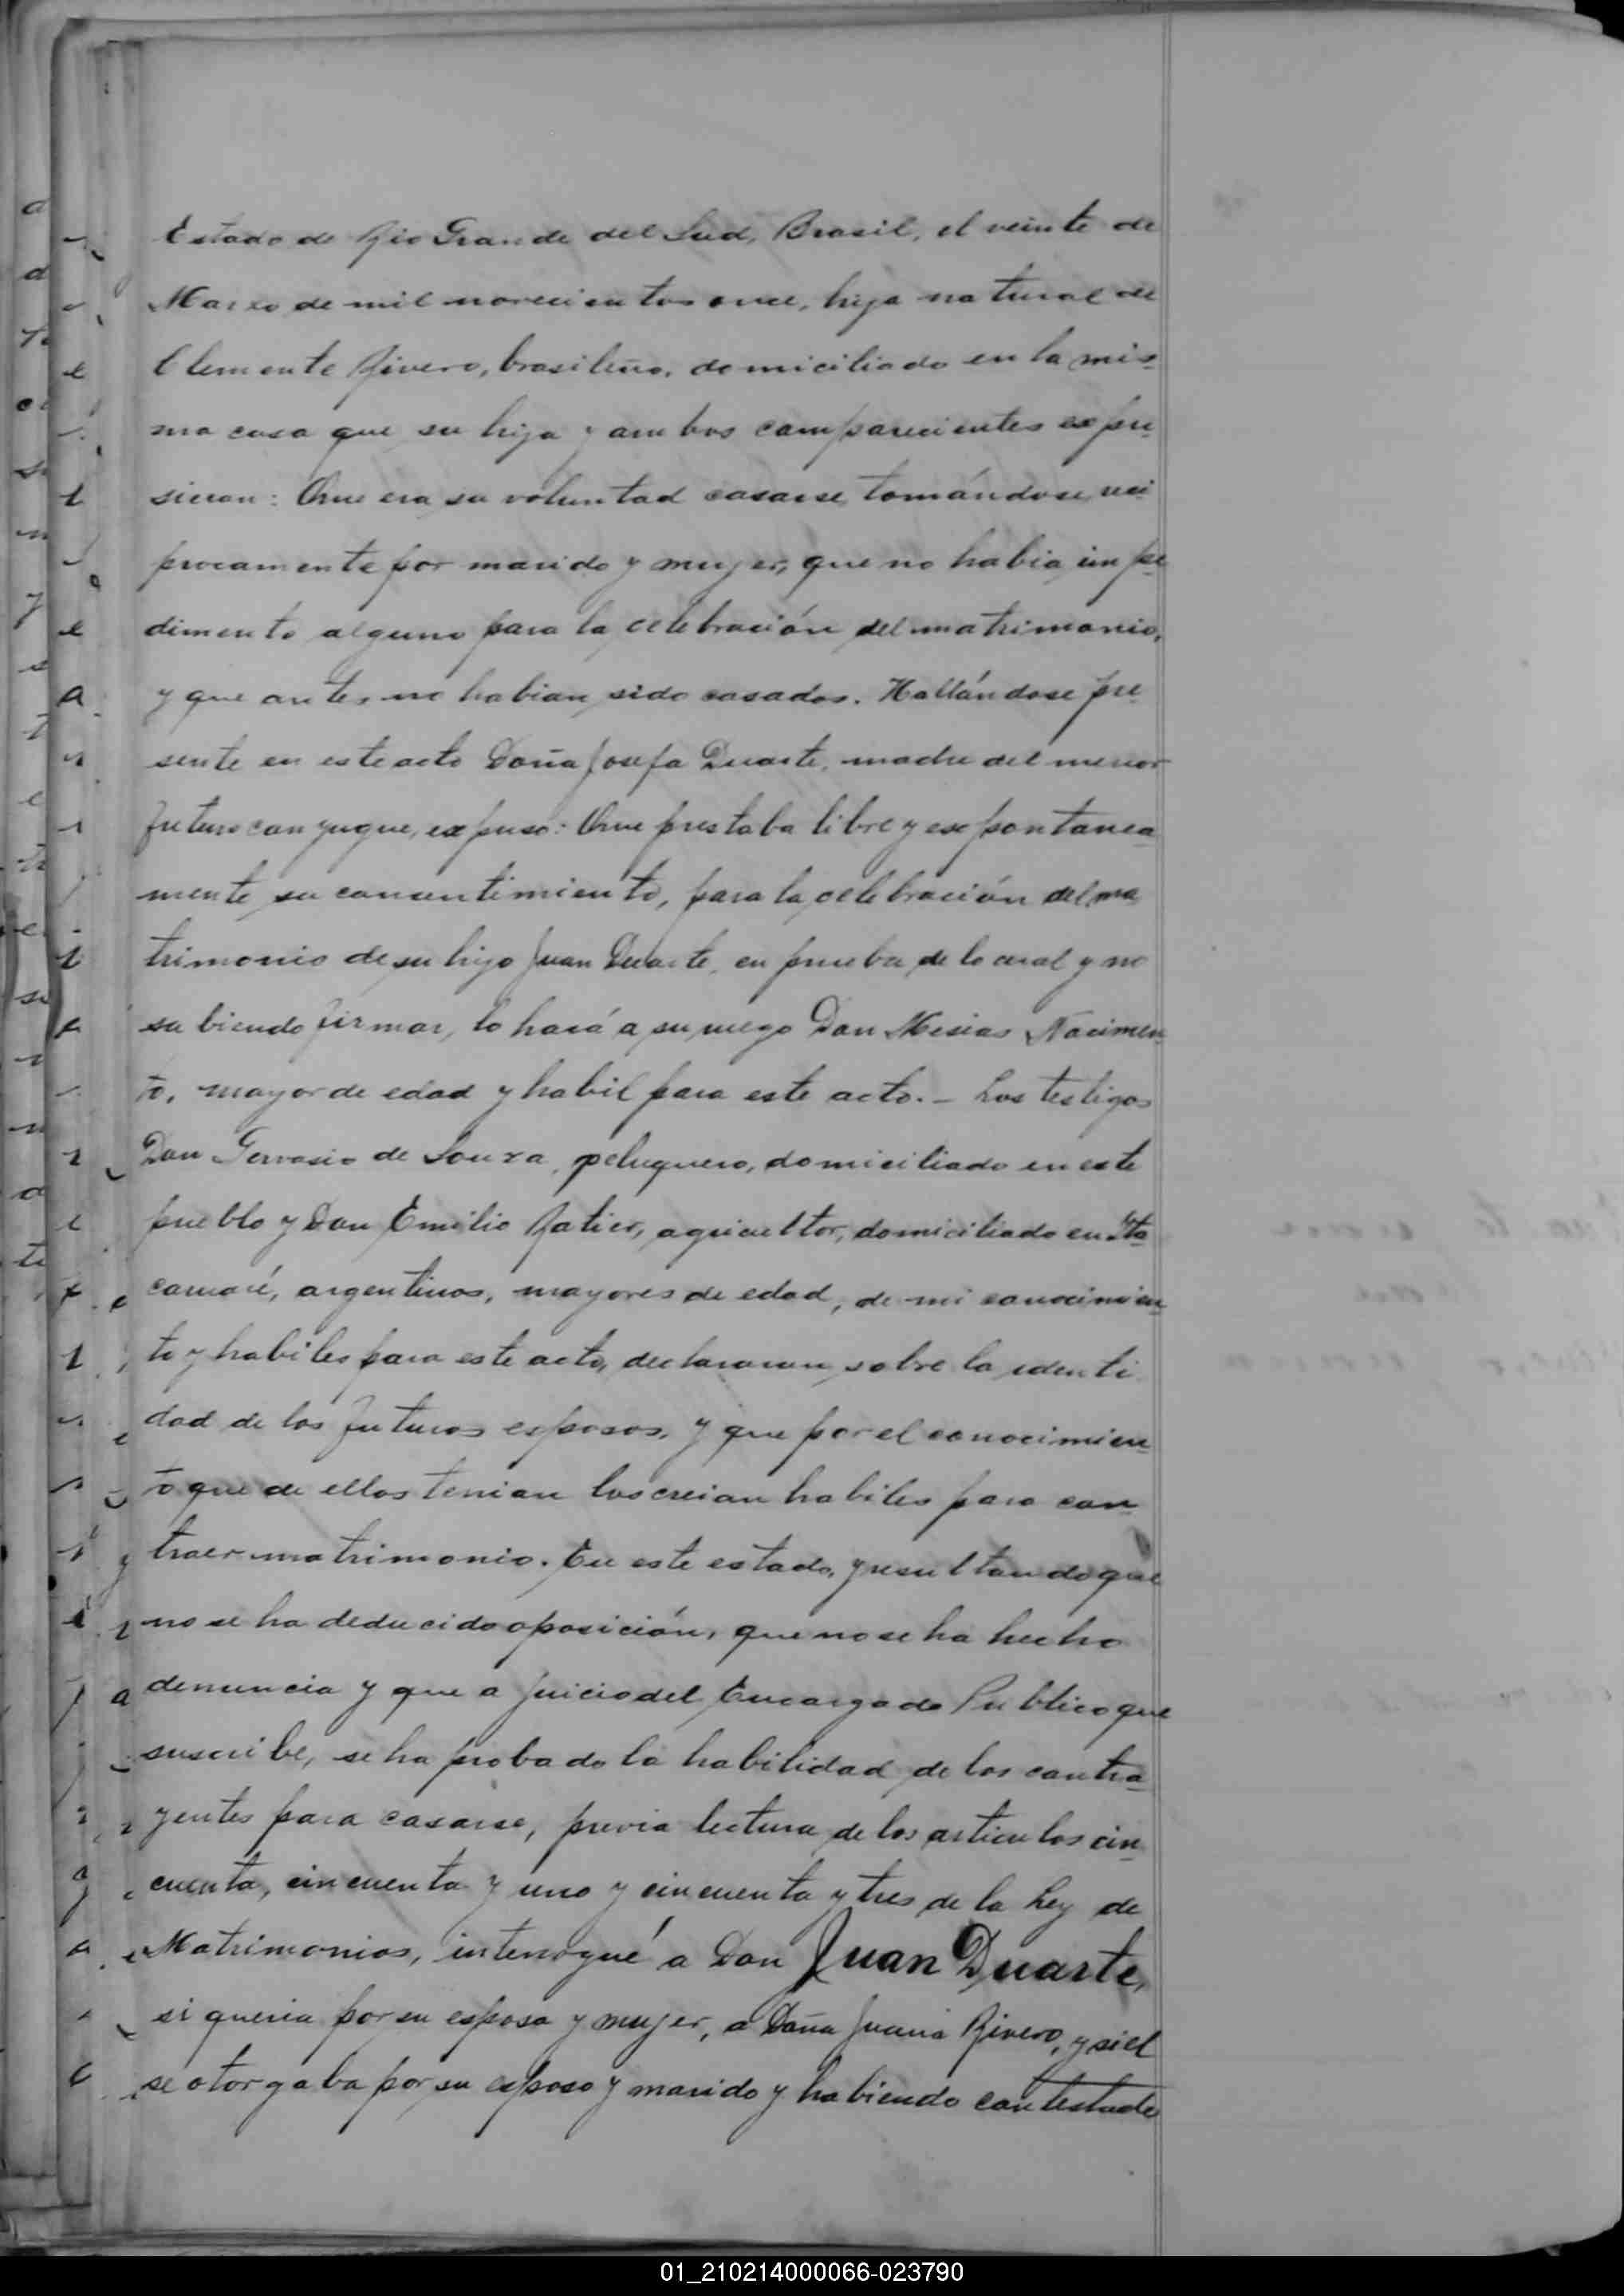 Estado de Rio Grande del Sud, Brasil, el veinte de
Marzo de mil novecientos once, hija natural de
Clemente Rivero, brasileño, domiciliado en la mis-
ma casa que su hija y ambos comparecientes expu-
sieron: Que era su voluntad casarse tomándose reci
procamente por marido y mujer, que no habia impe
dimento alguno para la celebración del matrimonio,
y que antes no habian sido casados. Hallándose pre
sente en este acto Doña Josefa Duarte, madre del menor
futuro conyugue, expuso: Que prestaba libre y expontanea
mente su consentimiento, para la celebración del ma
trimonio de su hijo Juan Duarte, en prueba de lo cual y no
sabiendo firmar, lo hará a su ruego Don Mesias Nacimen
to, mayor de edad y habil para este acto.- Los testigos
Don Gervasio de Souza, peluquero, domiciliado en este
pueblo y Don Emilio Ratier, agricultor, domiciliado en Ita
cacuaré, argentinos, mayores de edad, de mi conocimien
to y habiles para este acto, declararon sobre la identi
dad de los futuros esposos, y que por el conocimien
to que de ellos tenian los creian habiles para con
traer matrimonio. En este estado, y resultando que
no se ha deducido oposición, que no se ha hecho
denuncia y que a juicio del Encargado Publico que
suscribe, se ha probado la habilidad de los contra
yentes para casarse, previa lectura de los articulos cin
cuenta, cincuenta y uno y cincuenta y tres de la Ley de
Matrimonios, interrogué a Don Juan Duarte,
si queria por su esposa y mujer, a Doña Juana Rivero, y si el
se otorgaba por su esposo y marido y habiendo contestado
01_210214000066-023790